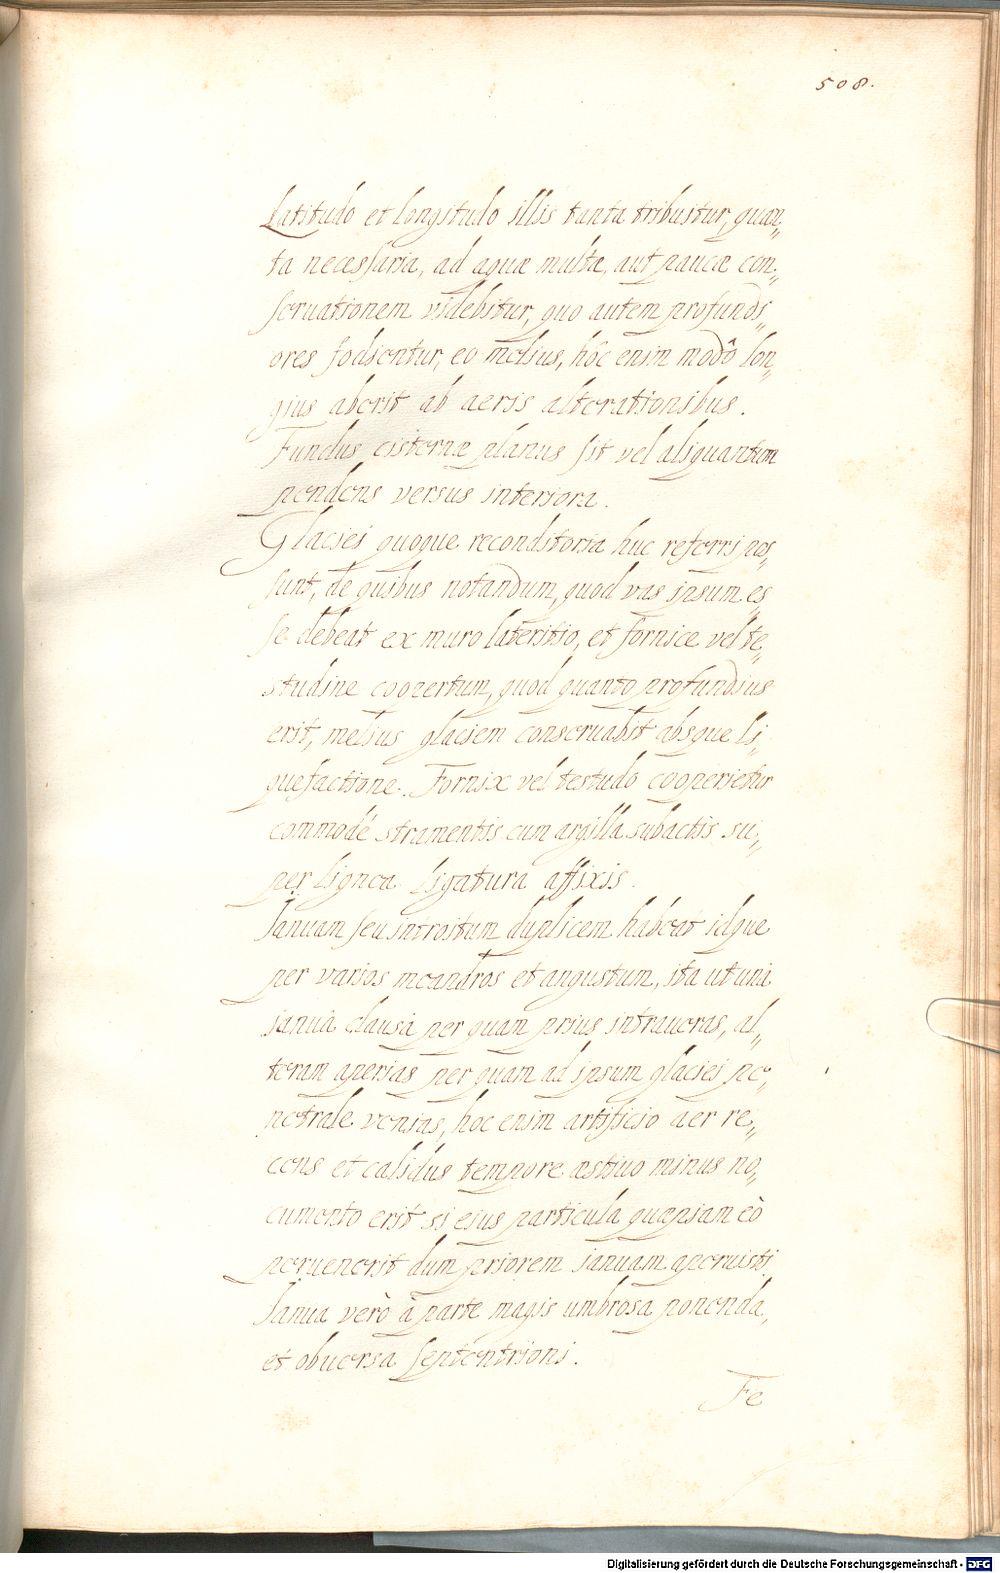 508.
Latitudo et longitudo illis tanta tribuitur, quan„
ta necessaria, ad aquæ multæ, aut paucæ con„
seruationem videbitur, quo autem profundi„
ores fodientur, eo melius, hôc enim modô lon„
gius aberit ab aeris alterationibus.
Fundus cisternæ planus sit vel aliquantum
pendens versus interiora.
Glaciei quoque reconditoria huc referri pos„
sunt, de quibus notandum, quod vas ipsum es„
se debeat ex muro lateritio, et fornice vel te„
studine coopertum, quod quanto profundius
erit, melius glaciem conseruabit absque li„
quefactione. Fornix vel testudo cooperietur
commodè stramentis cum argilla subactis su„
per lignea ligatura affixis.
Januam seu introitum duplicem habeat idque
per varios meandros et angustum, ita ut unà
januà clausà per quam prius intraueras, al„
teram aperias per quam ad ipsum glaciei pe„
netrale venias, hoc enim artificio aer re„
cens et calidus tempore æstiuo minus no„
cumento erit si eius particula quæpiam eò
peruenerit dum priorem januam aperuisti.
Janua verò à parte magis umbrosa ponenda,
et obuersa septentrioni.
Fe
Digitalisierung gefördert durch die Deutsche Forschungsgemeinschaft - DFG